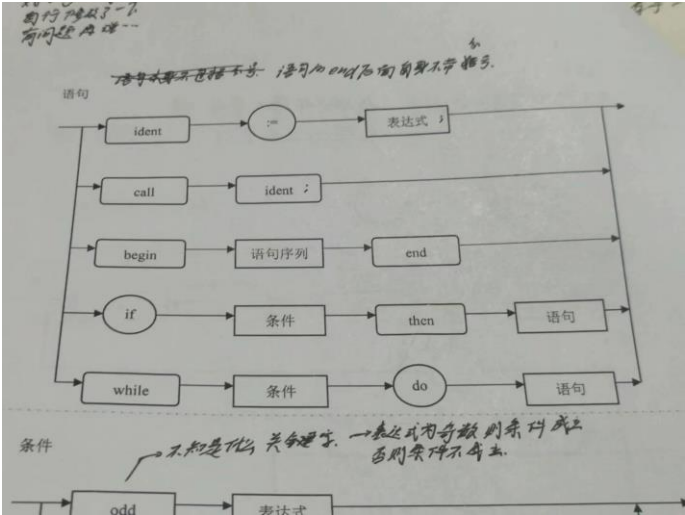 有问题
语句的end后面自身不带
语句
ident := 表达式 ;
call ident ;
begin 语句序列 end
if 条件 then 语句
while 条件 do 语句
不知是什么关键字. → 表达式为奇数则条件成立
否则条件不成立.
条件
odd 表达式